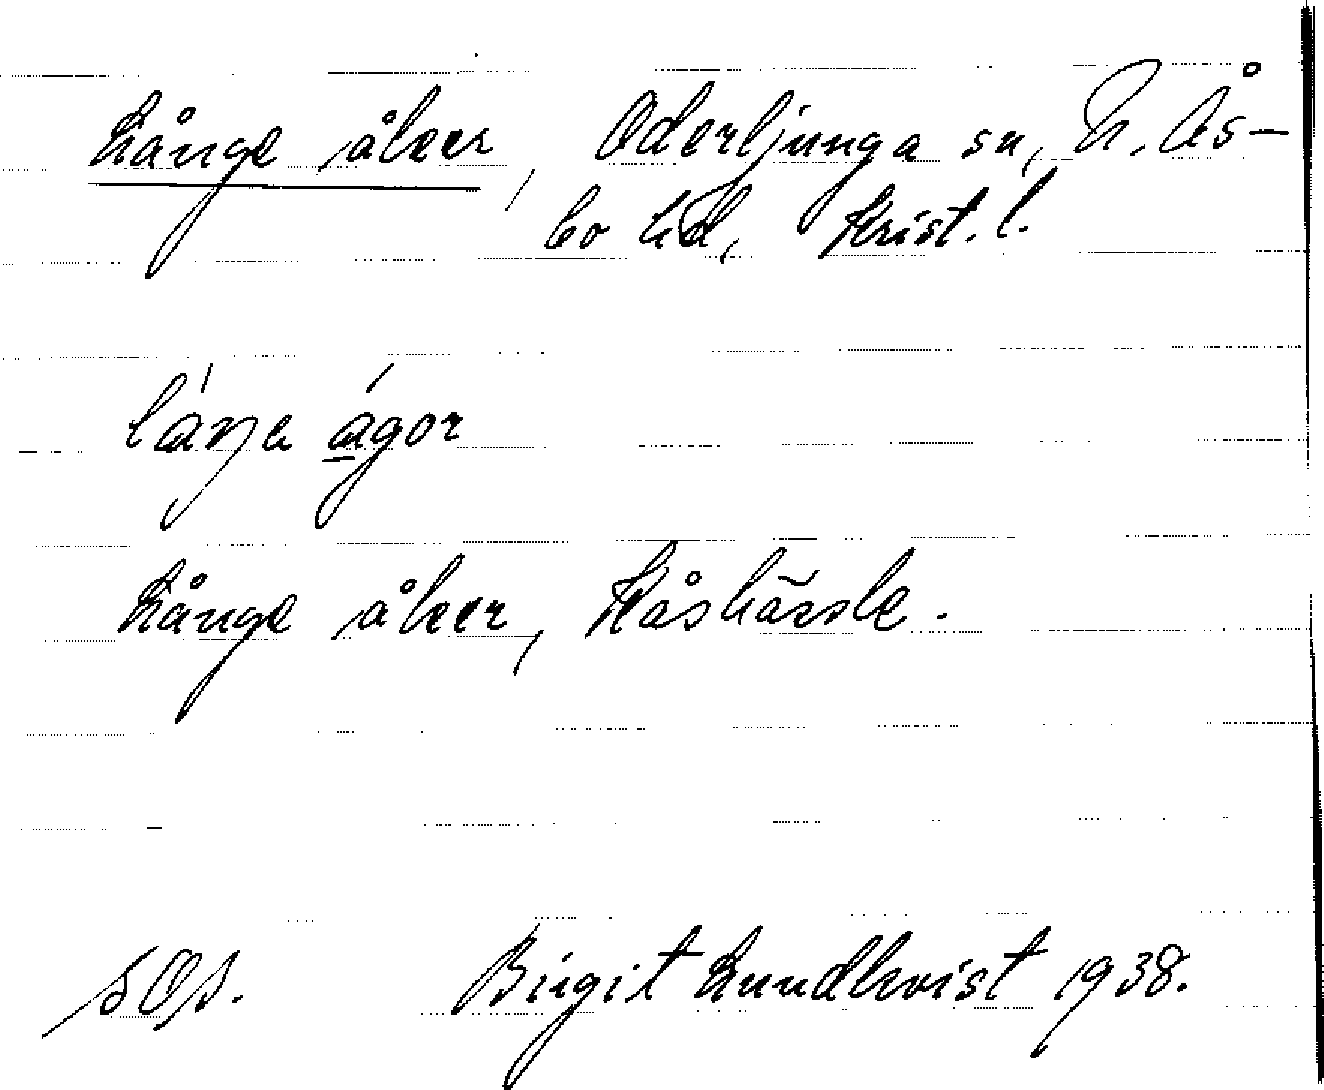 Långe åker, Oderljunga sn, N. Ås-
bo hd, Krist. l.
låŋa ågor
Långe åker, Kåshässle.
SOS. Birgit Lundkvist 1938.